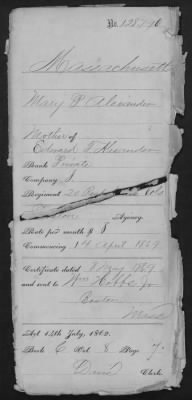 No. 128,796
Massachusetts
Mary P. Alexander
Mother of
Edward F. Alexander
Rank Private
Company I
Regiment 20
Agency.
Rate per month $ 8
Commencing 14 April 1864
Certificate dated 8 May 1869
and sent to Wm Hobbs Jr
Boston
Mass
Act 14th July, 1862.
Book C Vol 8 Page 7.
Clerk.